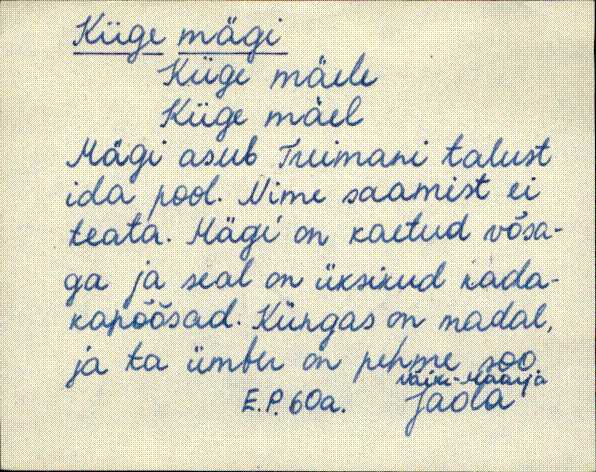 Küge mägi
Küge mäele
Küge mäel
Mägi asub Truimani talust
ida pool. Nime saamist ei
teata. Mägi on kaetud võsa-
ga ja seal on üksikud kada-
kapõõsad. Küngas on madal,
ja ta ümber on pehme soo
Väike-Maarja
E.P. 60a. Jaola